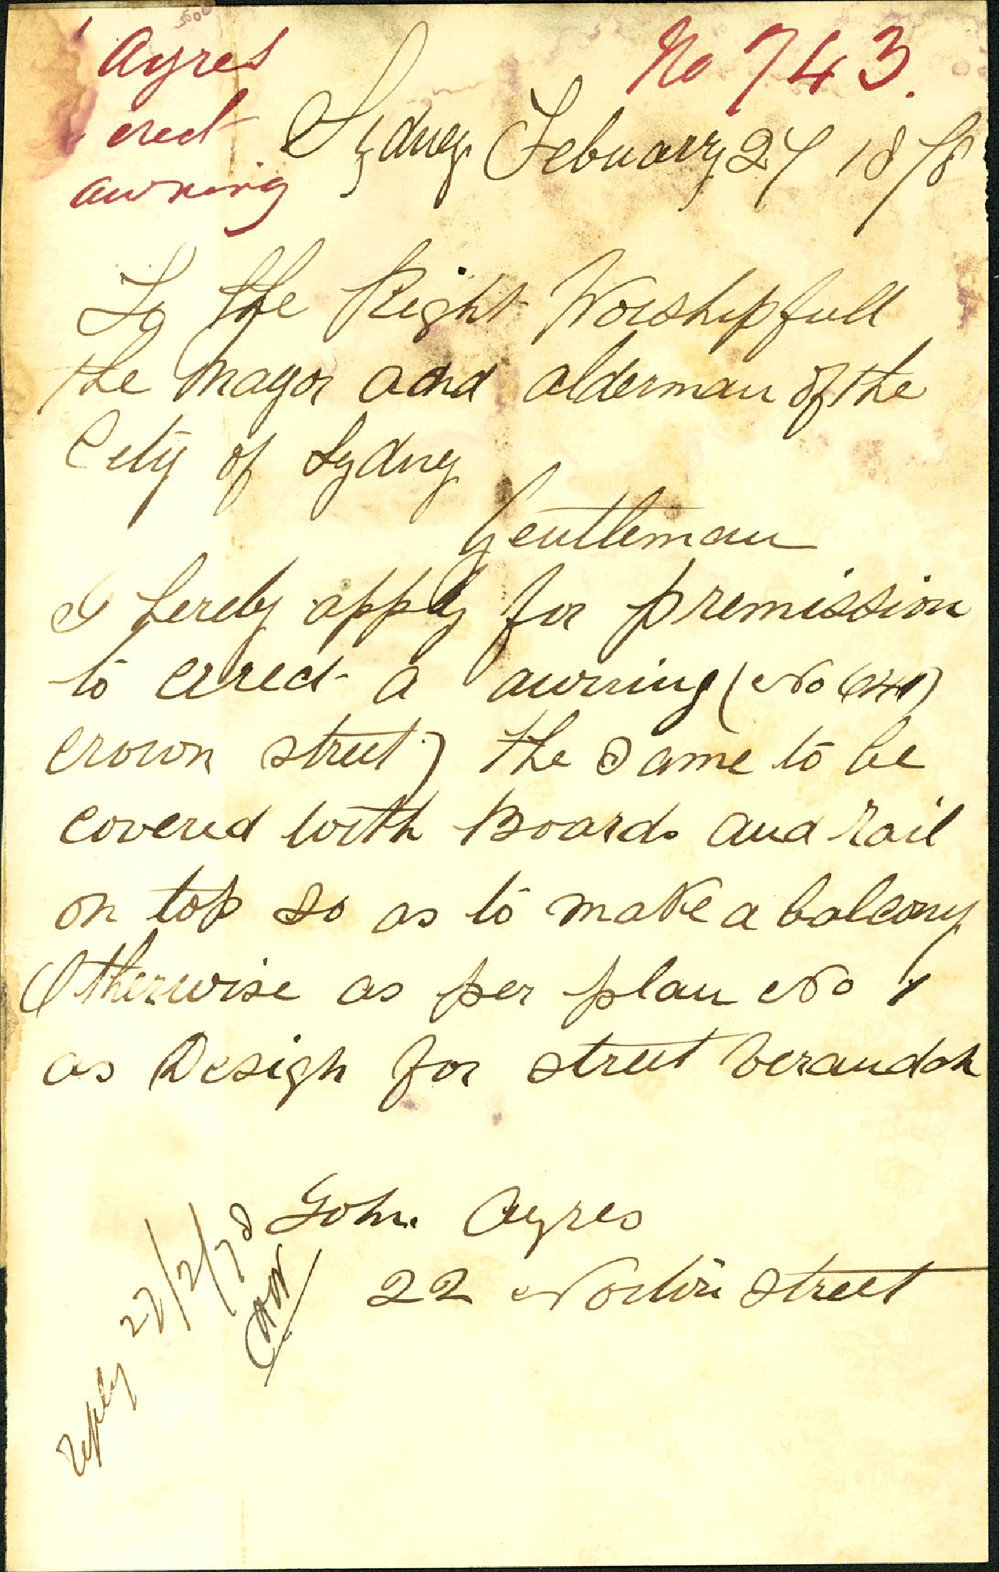 Ayres
erect
awning
No 743.
Sydney February 27 1878
To the Right Worshipfull
the Mayor and alderman of the
City of Sydney
Gentleman
I hereby apply for premission
to erect a awning (No
crown street) the same to be
covered with Boards and rail
on top so as to make a balcony
Otherwise as per plan No 1
as Design for street verandah
John Ayres
22 street
reply 27/2/78